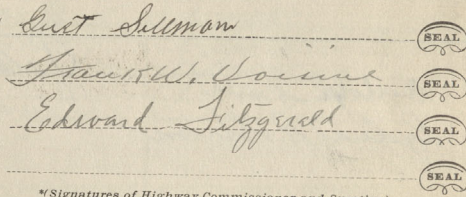 Gust Sillmam SEAL
Frank W. Voisine SEAL
Edward Fitzgerald SEAL
SEAL
*(Signatures of Highway Commissioner and